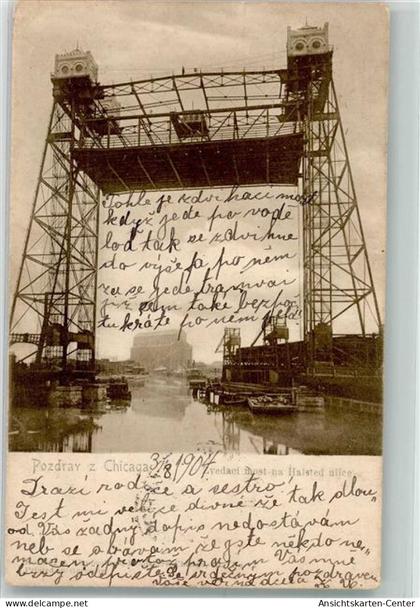 Tohle je zdvihací most
když jede po vodě
loď tak se zdvihne
do výše a po něm
za se jede tramvai
již sem také bezpo-
tukráte po něm jela.
Pozdrav z Chicaga 3/8 1904 Zvedací most na Halsted ulice
Drazí rodiče a sestro!
Jest mi velice divné že tak dlou
od Vás žádný dopis nedostávám
neb se obávám že jste někdo ne-
macen, proto žádám Vás mně
brzy odepište. Se srdečným pozdravem
Vaše vděčná dcera
Ansichtskarten-Center